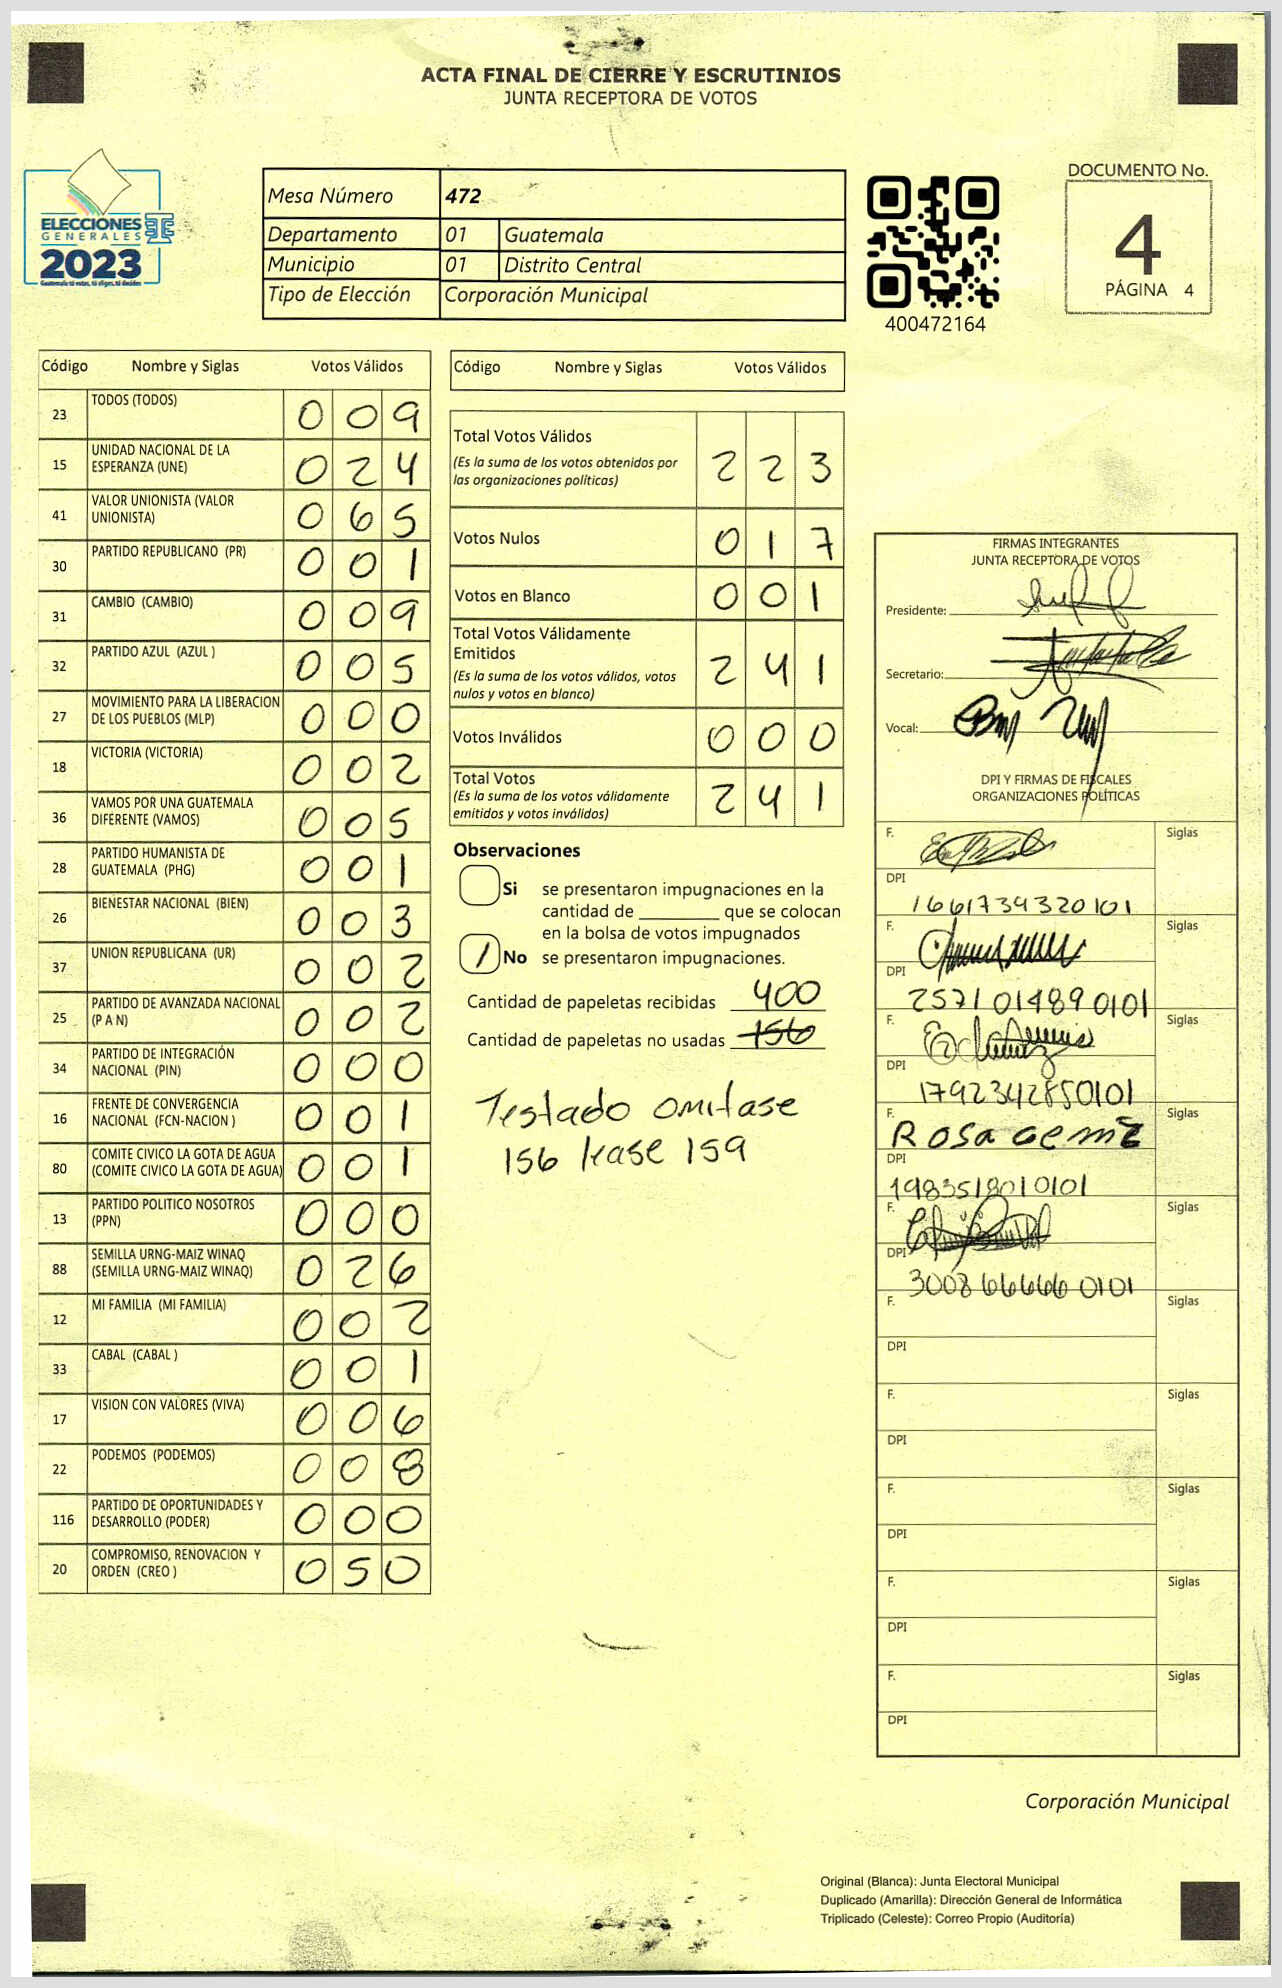 ACTA FINAL DE CIERRE Y ESCRUTINIOS
JUNTA RECEPTORA DE VOTOS
ELECCIONES
GENERALES
2023
Mesa Número 472
Departamento 01 Guatemala
Municipio 01 Distrito Central
Tipo de Elección Corporación Municipal
400472164
DOCUMENTO No.
4
PÁGINA 4
Código Nombre y Siglas Votos Válidos
23 TODOS (TODOS) 0 0 9
15 UNIDAD NACIONAL DE LA ESPERANZA (UNE) 0 2 4
41 VALOR UNIONISTA (VALOR UNIONISTA) 0 6 5
30 PARTIDO REPUBLICANO (PR) 0 0 1
31 CAMBIO (CAMBIO) 0 0 9
32 PARTIDO AZUL (AZUL ) 0 0 5
27 MOVIMIENTO PARA LA LIBERACION DE LOS PUEBLOS (MLP) 0 0 0
18 VICTORIA (VICTORIA) 0 0 2
36 VAMOS POR UNA GUATEMALA DIFERENTE (VAMOS) 0 0 5
28 PARTIDO HUMANISTA DE GUATEMALA (PHG) 0 0 1
26 BIENESTAR NACIONAL (BIEN) 0 0 3
37 UNION REPUBLICANA (UR) 0 0 2
25 PARTIDO DE AVANZADA NACIONAL (P A N) 0 0 2
34 PARTIDO DE INTEGRACIÓN NACIONAL (PIN) 0 0 0
16 FRENTE DE CONVERGENCIA NACIONAL (FCN-NACION ) 0 0 1
80 COMITE CIVICO LA GOTA DE AGUA (COMITE CIVICO LA GOTA DE AGUA) 0 0 1
13 PARTIDO POLITICO NOSOTROS (PPN) 0 0 0
88 SEMILLA URNG-MAIZ WINAQ (SEMILLA URNG-MAIZ WINAQ) 0 2 6
12 MI FAMILIA (MI FAMILIA) 0 0 2
33 CABAL (CABAL ) 0 0 1
17 VISION CON VALORES (VIVA) 0 0 6
22 PODEMOS (PODEMOS) 0 0 8
116 PARTIDO DE OPORTUNIDADES Y DESARROLLO (PODER) 0 0 0
20 COMPROMISO, RENOVACION Y ORDEN (CREO ) 0 5 0
Código Nombre y Siglas Votos Válidos
Total Votos Válidos 2 2 3
(Es la suma de los votos obtenidos por
las organizaciones políticas)
Votos Nulos 0 1 7
Votos en Blanco 0 0 1
Total Votos Válidamente
Emitidos 2 4 1
(Es la suma de los votos válidos, votos
nulos y votos en blanco)
Votos Inválidos 0 0 0
Total Votos 2 4 1
(Es la suma de los votos válidamente
emitidos y votos inválidos)
Observaciones
Si se presentaron impugnaciones en la
cantidad de ________ que se colocan
en la bolsa de votos impugnados
No se presentaron impugnaciones.
Cantidad de papeletas recibidas 400
Cantidad de papeletas no usadas 156
Testado omitase
156 lease 159
FIRMAS INTEGRANTES
JUNTA RECEPTORA DE VOTOS
Presidente:
Secretario:
Vocal:
DPI Y FIRMAS DE FISCALES
ORGANIZACIONES POLÍTICAS
F. Siglas
DPI
1661734320101
F. Siglas
DPI
2571014890101
F. Siglas
DPI
1792342850101
F. Siglas
Rosa
DPI
1983518010101
F. Siglas
DPI
3008666660101
F. Siglas
DPI
F. Siglas
DPI
F. Siglas
DPI
F. Siglas
DPI
F. Siglas
DPI
Corporación Municipal
Original (Blanca): Junta Electoral Municipal
Duplicado (Amarilla): Dirección General de Informática
Triplicado (Celeste): Correo Propio (Auditoría)